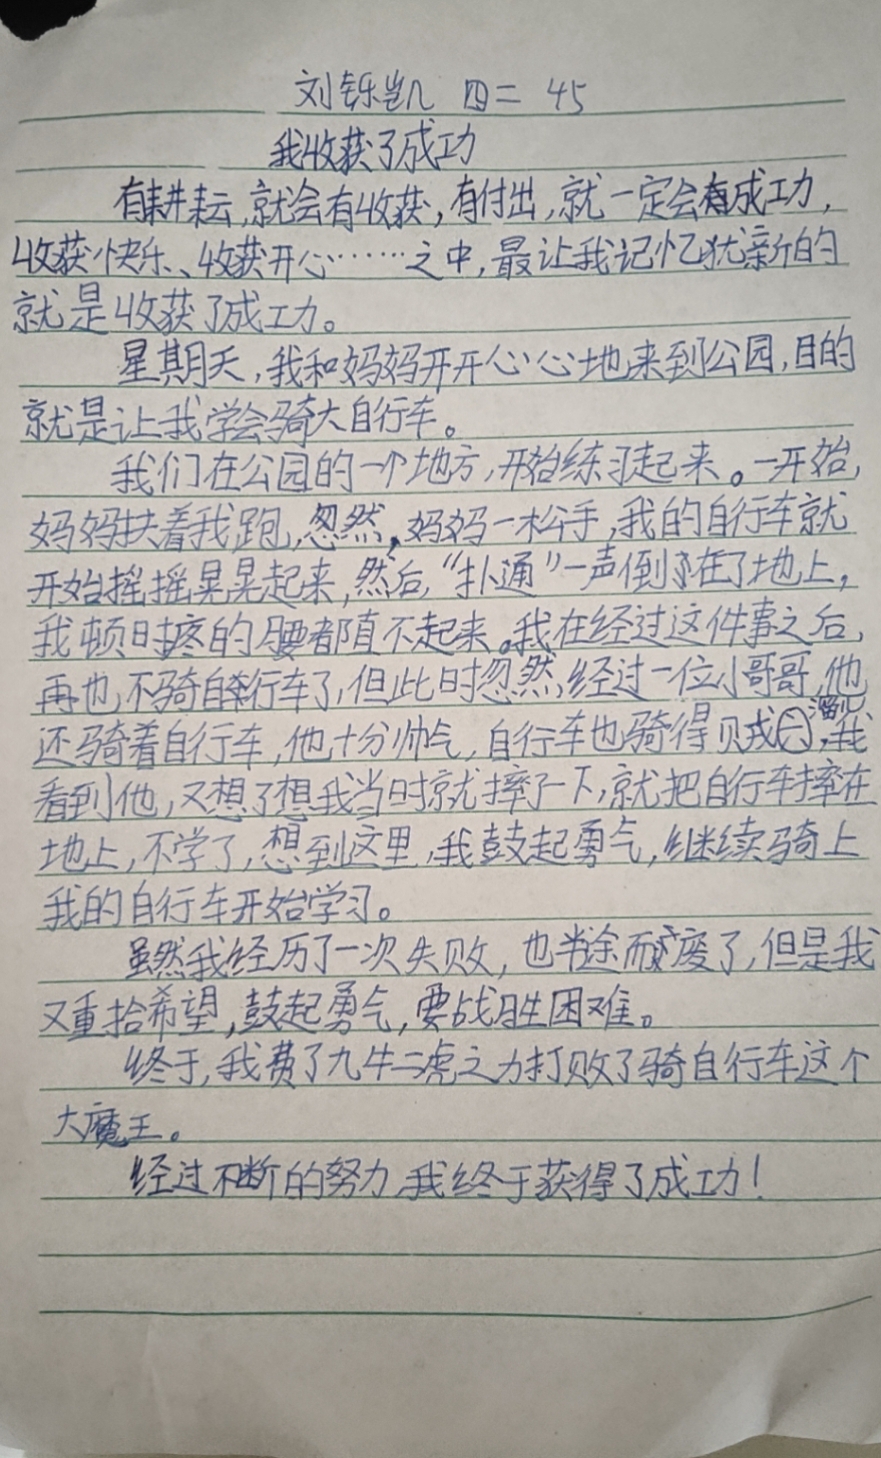 刘铄凯 四二 45
我收获了成功
有耕耘,就会有收获,有付出,就一定会有成功,
收获快乐、收获开心……之中,最让我记忆犹新的
就是收获了成功。
星期天,我和妈妈开开心心地来到公园,目的
就是让我学会骑大自行车。
我们在公园的一个地方,开始练习起来。一开始,
妈妈扶着我跑,忽然,妈妈一松手,我的自行车就
开始摇摇晃晃起来,然后,“扑通”一声倒在了地上,
我顿时疼的腰都直不起来。我在经过这件事之后,
再也不骑自行车了,但此时忽然,经过一位小哥哥,他
还骑着自行车,他十分帅气,自行车也骑得贼溜儿,我
看到他,又想了想我当时就摔了一下,就把自行车摔在
地上,不学了,想到这里,我鼓起勇气,继续骑上
我的自行车开始学习。
虽然我经历了一次失败,也半途而废了,但是我
又重拾希望,鼓起勇气,要战胜困难。
终于,我费了九牛二虎之力打败了骑自行车这个
大魔王。
经过不断的努力,我终于获得了成功!